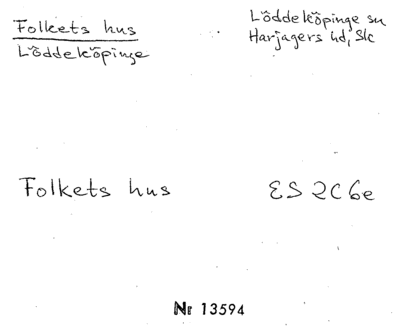 Folkets hus
Löddeköpinge
Löddeköpinge sn
Harjagers hd, Sk
Folkets hus
ES 2C 6e
Nr 13594